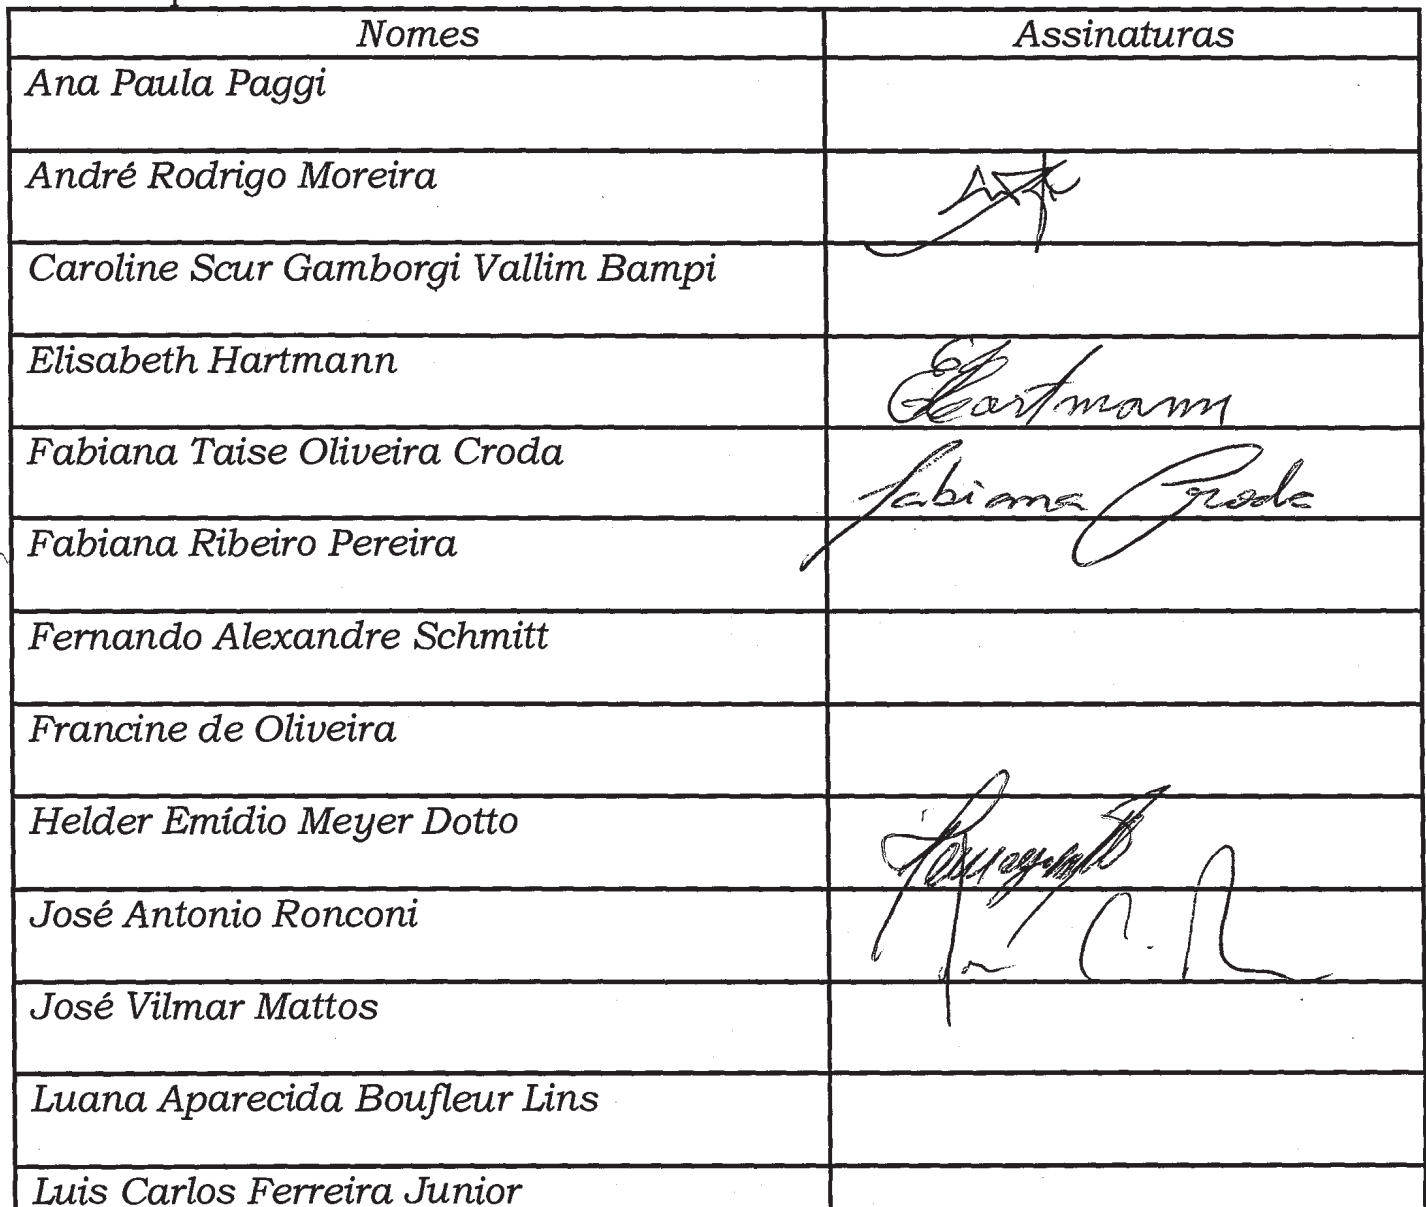 Nomes Assinaturas
Ana Paula Paggi
André Rodrigo Moreira
Caroline Scur Gamborgi Vallim Bampi
Elisabeth Hartmann EHartmann
Fabiana Taise Oliveira Croda Fabiana Croda
Fabiana Ribeiro Pereira
Fernando Alexandre Schmitt
Francine de Oliveira
Helder Emídio Meyer Dotto
José Antonio Ronconi
José Vilmar Mattos
Luana Aparecida Boufleur Lins
Luis Carlos Ferreira Junior